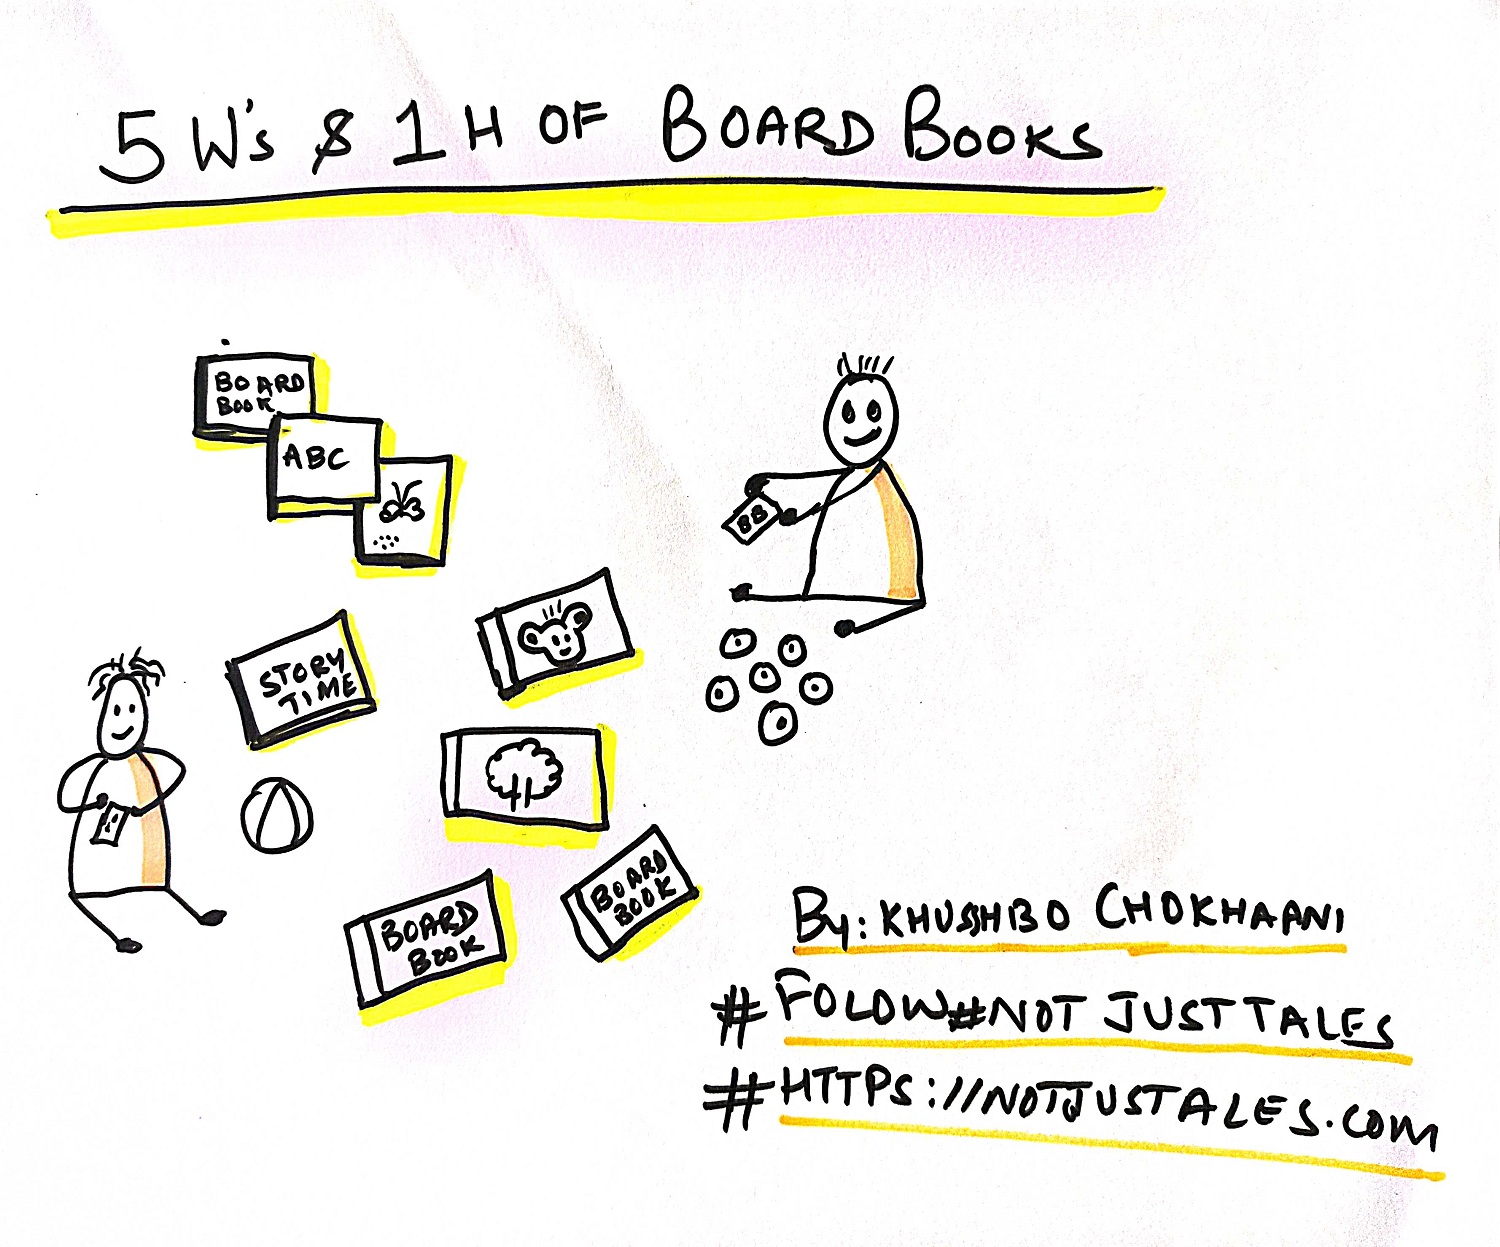 5 W's & 1 H OF BOARD BOOKS
BOARD
BOOK
ABC
BB
STORY
TIME
BOARD
BOOK
BOARD
BOOK
By: KHUSHBO CHOKHAANI
# FOLOW#NOT JUST TALES
# HTTPS://NOTJUSTALES.COM